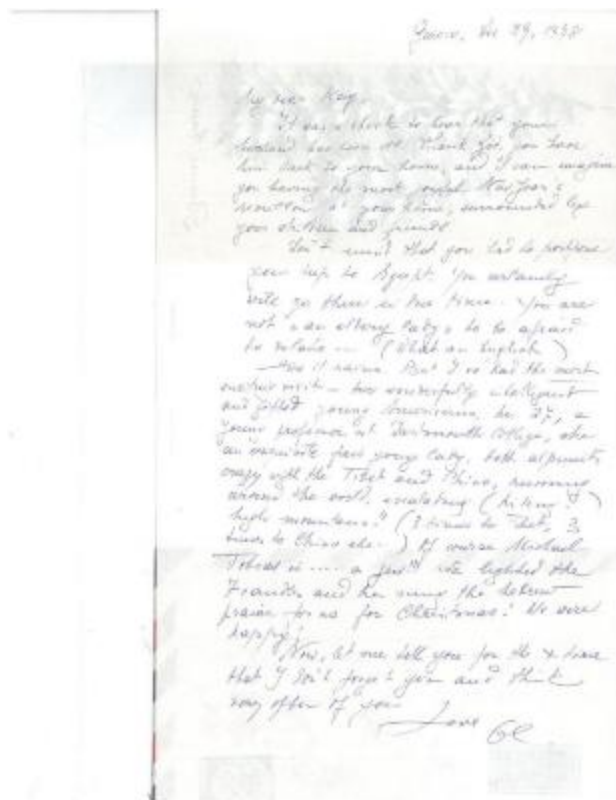 Dec 29, 1938
My dear Kay,
It was a shock to hear that your
husband has been ill. Thank God, you have
him back to your home, and I can imagine
you having the most joyful New Year's
at your home, surrounded by
your children and friends
Don't mind that you had to postpone
your trip to Egypt. You certainly
will go there in due time. You are
not "an elderly lady" to be afraid
to (What an English)
Here it rains. But I've had the most
visit two wonderfully intelligent
and gifted young Americans, he 27, a
young professor at Dartmouth College, she
an exquisite fair young lady, both
crazy with the Tibet and China, running
around the world, (hiking?)
high mountains! (3 times to Tibet, 3
times to China etc.) Of course Michael
Tobias is .... a jew! We lighted the
and he sung the Hebrew
for us for Christmas! We were
happy!
Now, let me tell you for the x time
that I don't forget you and think
very often of you
Love